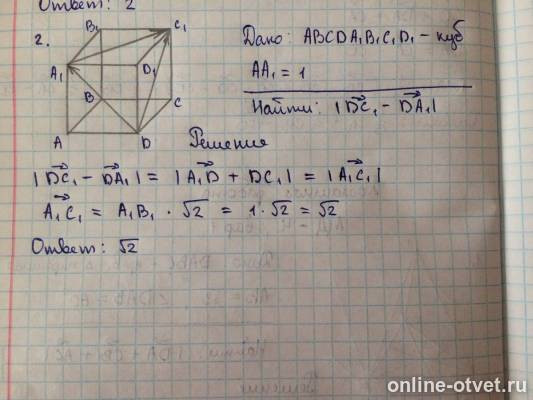 Ответ: 2
2.
B₁ C₁
A₁ D₁
B C
A D
Дано: ABCDA₁B₁C₁D₁ – куб
AA₁ = 1
Найти: |DC₁ – DA₁|
Решение
|DC₁ – DA₁| = |A₁D + DC₁| = |A₁C₁|
A₁C₁ = A₁B₁ · √2 = 1·√2 = √2
Ответ: √2
online-otvet.ru